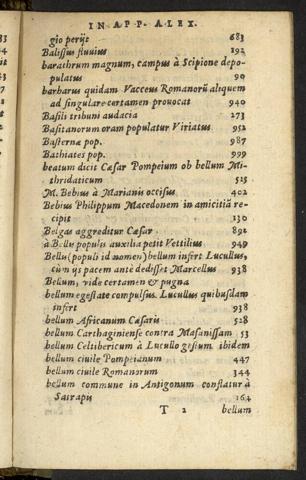 IN APP. ALEX.
gio perijt 683
Balissus fluuius 192
barathrum magnum, campus à Scipione depo-
pulatus 90
barbarus quidam Vacceus Romanorū aliquem
ad singulare certamen prouocat 940
Basili tribuni audacia 273
Basitanorum oram populatur Viriatus 952
Basternæ pop. 987
Bathiates pop. 999
beatum dicit Cæsar Pompeium ob bellum Mi-
thridaticum 525
M. Bebius à Marianis occisus 402
Bebius Philippum Macedonem in amicitiā re-
cipit 130
Belgas aggreditur Cæsar 892
à Bellis populis auxilia petit Vettilius 949
Bellis (populi id nomen) bellum infert Lucullus,
cùm ijs pacem antè dedisset Marcellus 938
Bellum, vide certamen & pugna
bellum egestate compulsus Lucullus quibusdam
infert 938
bellum Africanum Cæsaris 528
bellum Carthaginiense contra Masanissam 53
bellum Celtibericum à Lucullo gestum ibidem
bellum ciuile Pompeianum 447
bellum ciuile Romanorum 344
bellum commune in Antigonum conflatur à
Satrapis 164
T 2 bellum